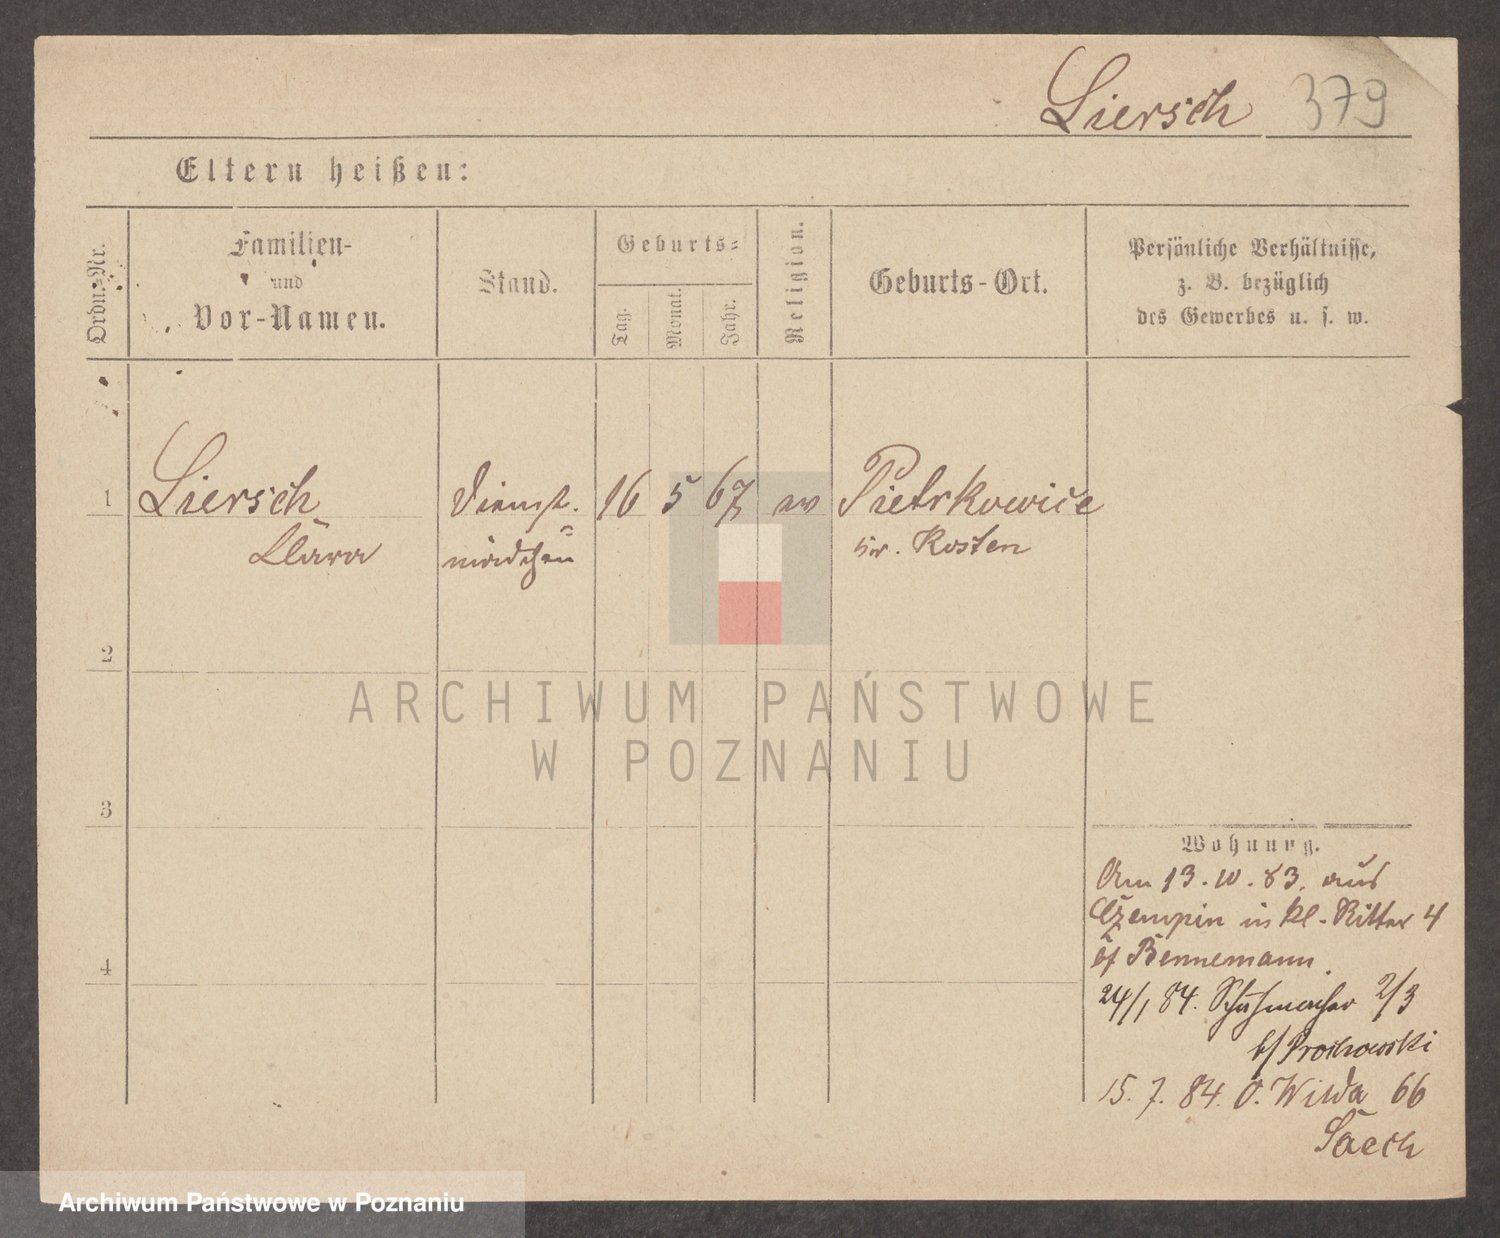 Liersch 379
Eltern heißen:
Ordn.-Nr.
Familien-
und
Vor-Namen.
Stand.
Geburts-
Tag.
Monat.
Jahr.
Religion.
Geburts-Ort.
Persönliche Verhältnisse,
z. B. bezüglich
des Gewerbes u. s. w.
1 Liersch Dienst- 16 5 67 ev Pietrkowice
Clara mädchen Kr. Kosten
2
3
4
Wohnung.
Am 13. 10. 83. aus
Czempin in kl. Ritter 4
b/ Bennemann.
24/1 84. Schuhmacher 2/3
b/
15. 7. 84. O. Wilda 66
ARCHIWUM PAŃSTWOWE
W POZNANIU
Archiwum Państwowe w Poznaniu